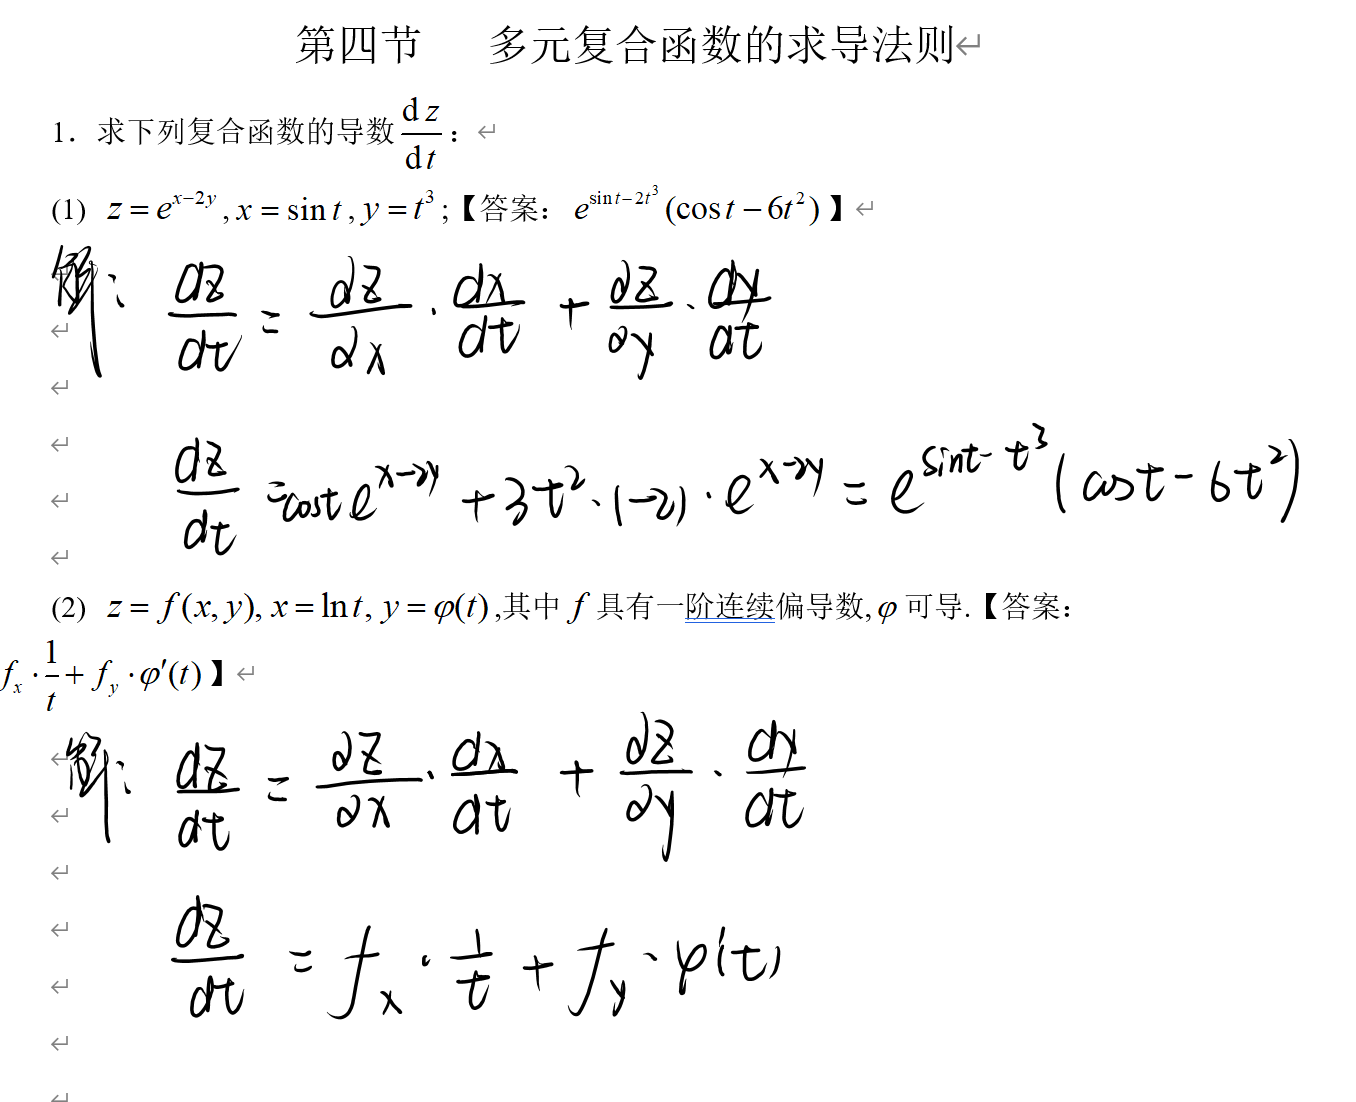 第四节 多元复合函数的求导法则
1. 求下列复合函数的导数 dz/dt：
(1) z = e^{x-2y}, x = sin t, y = t^3;【答案：e^{sin t-2t^3}(cos t - 6t^2)】
解： dz/dt = ∂z/∂x · dx/dt + ∂z/∂y · dy/dt
dz/dt = cost e^{x-2y} + 3t^2 · (-2) · e^{x-2y} = e^{sint-t^3}(cost-6t^2)
(2) z = f(x, y), x = ln t, y = φ(t),其中 f 具有一阶连续偏导数, φ 可导.【答案：
f_x · 1/t + f_y · φ′(t)】
解： dz/dt = ∂z/∂x · dx/dt + ∂z/∂y · dy/dt
dz/dt = f_x · 1/t + f_y · φ′(t)